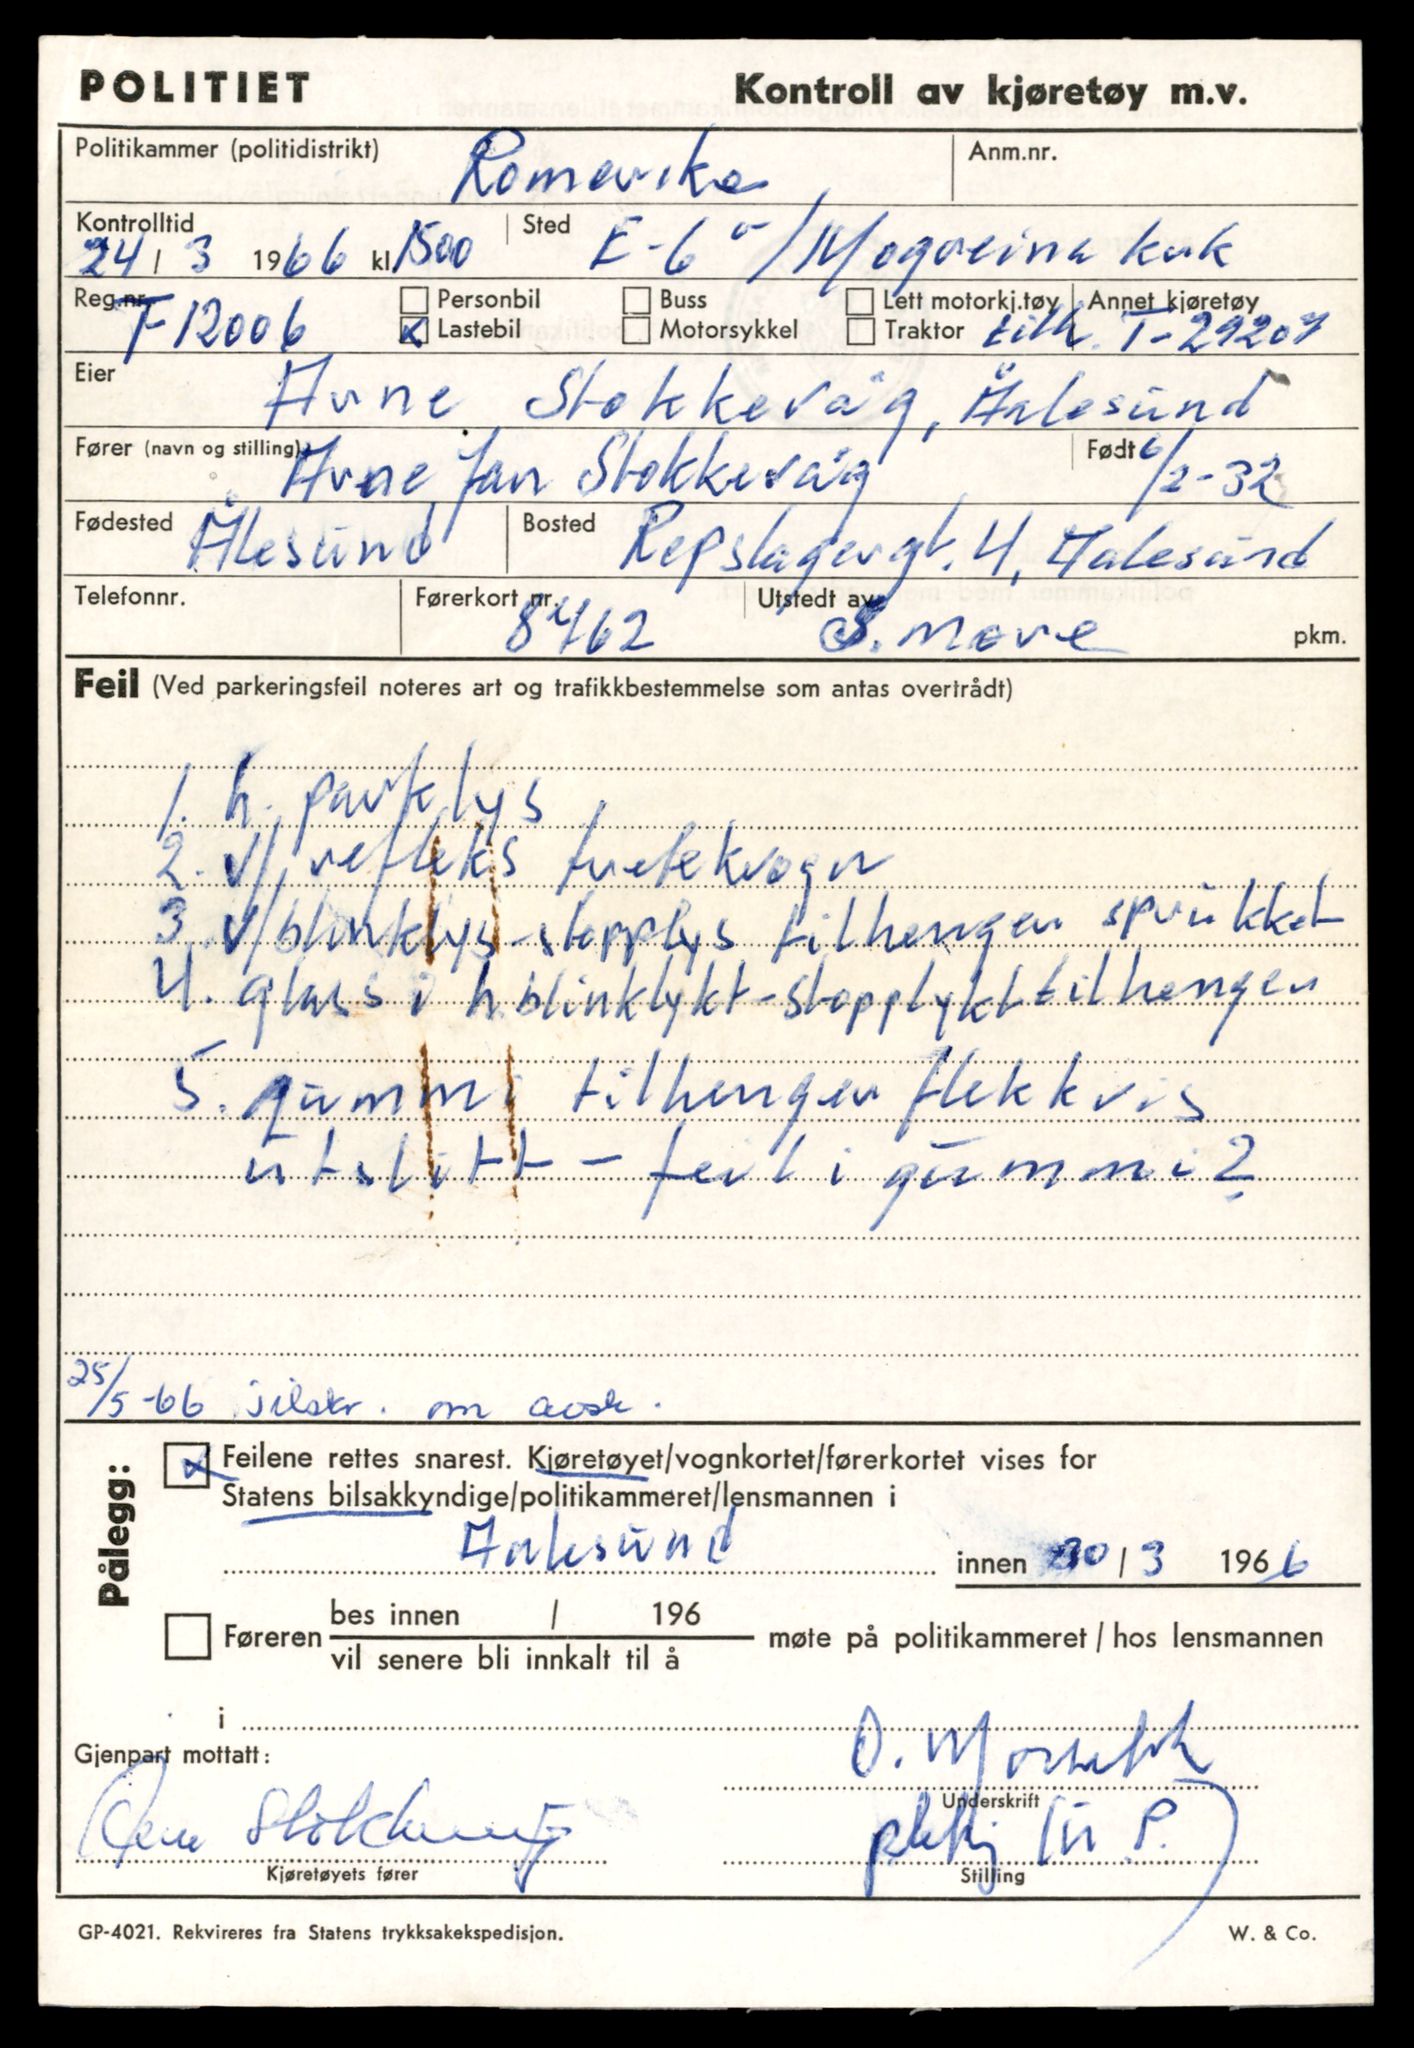 POLITIET Kontroll av kjøretøy m.v.
Politikammer (politidistrikt) Romerike Anm.nr.
Kontrolltid 24/3 1966 kl. 1500 Sted E-6 v/Mogreina
Reg.nr. F 12006 Personbil Buss Lett motorkj.tøy Annet kjøretøy
x Lastebil Motorsykkel Traktor tilh. T-29207
Eier Arne Stokkevåg, Aalesund
Fører (navn og stilling) Arne Jan Stokkevåg Født 6/2-32
Fødested Ålesund Bosted Repslagergt. 4, Aalesund
Telefonnr. Førerkort nr. 8462 Utstedt av S. Møre pkm.
Feil (Ved parkeringsfeil noteres art og trafikkbestemmelse som antas overtrådt)
1. h. parklys
2. v/ refleks trekkvogn
3. v/blinklys-stopplys tilhenger sprukket
4. glass i h. blinklykt-stopplykt tilhenger
5. gummi tilhenger flekkvis
utslitt - feil i gummi?
25/5-66 Tilskr. om
Pålegg:
x Feilene rettes snarest. Kjøretøyet/vognkortet/førerkortet vises for
Statens bilsakkyndige/politikammeret/lensmannen i
Aalesund innen 30/3 1966
Føreren bes innen / 196
vil senere bli innkalt til å møte på politikammeret / hos lensmannen
i
Gjenpart mottatt: O.
Underskrift
Arne Stokkevåg
Kjøretøyets fører Stilling
GP-4021. Rekvireres fra Statens trykksakekspedisjon. W. & Co.